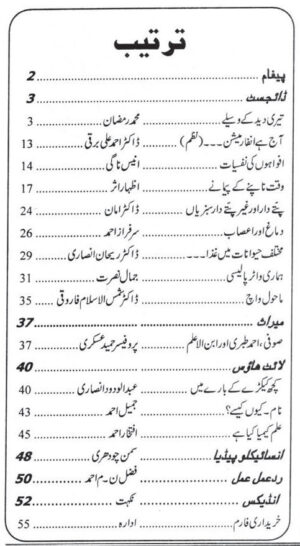 ترتیب
پیغام ........ 2
ڈائجسٹ ........ 3
تیری دید کے وسیلے ........ محمد رمضان ........ 3
آج ہے انفارمیشن ۔۔۔ (نظم) ........ ڈاکٹر احمد علی برقی ........ 13
افواہوں کی نفسیات ........ انیس ناگی ........ 14
وقت ناپنے کے پیمانے ........ اظہار اثر ........ 17
پتّے دار اور غیر پتّے دار سبزیاں ........ ڈاکٹر امان ........ 24
دماغ اور اعصاب ........ سرفراز احمد ........ 26
مختلف حیوانات میں غذا ۔۔۔ ڈاکٹر ریحان انصاری ........ 29
ہماری واٹر پالیسی ........ جمال نصرت ........ 31
ماحول واچ ........ ڈاکٹر شمس الاسلام فاروقی ........ 35
میراث ........ 37
صوفی، احمد طبری اور ابن الاعلم ........ پروفیسر حمید عسکری ........ 37
لائٹ ھاؤس ........ 40
کچھ کیکڑے کے بارے میں ........ عبدالودود انصاری ........ 40
نام ۔ کیوں کیسے؟ ........ جمیل احمد ........ 43
علم کیمیا کیا ہے ........ افتخار احمد ........ 45
انسائیکلو پیڈیا ........ سمن چودھری ........ 48
ردعمل ........ فضل ن ۔ م احمد ........ 50
انڈیکس ........ نکہت ........ 52
خریداری فارم ........ ادارہ ........ 55